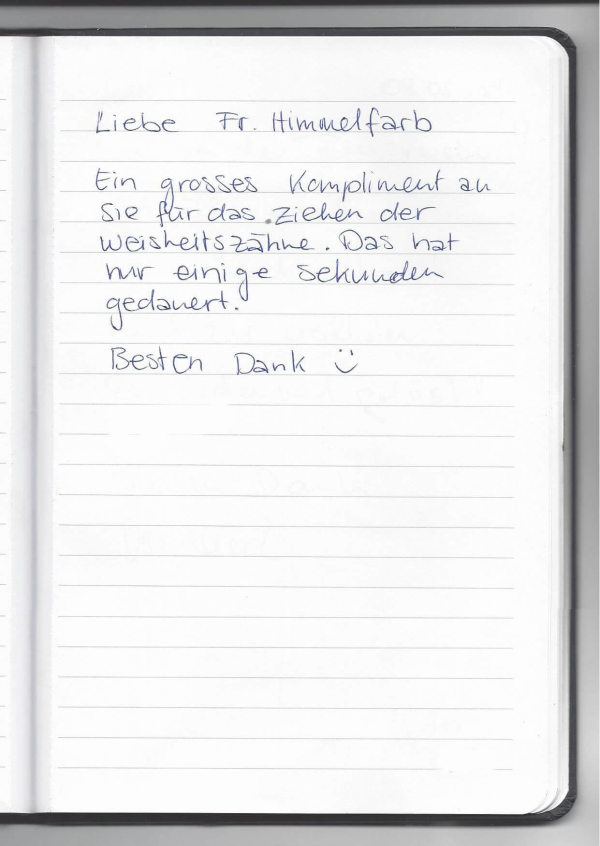 Liebe Fr. Himmelfarb
Ein grosses Kompliment an
Sie für das ziehen der
Weisheitszähne. Das hat
nur einige Sekunden
gedauert.
Besten Dank ☺